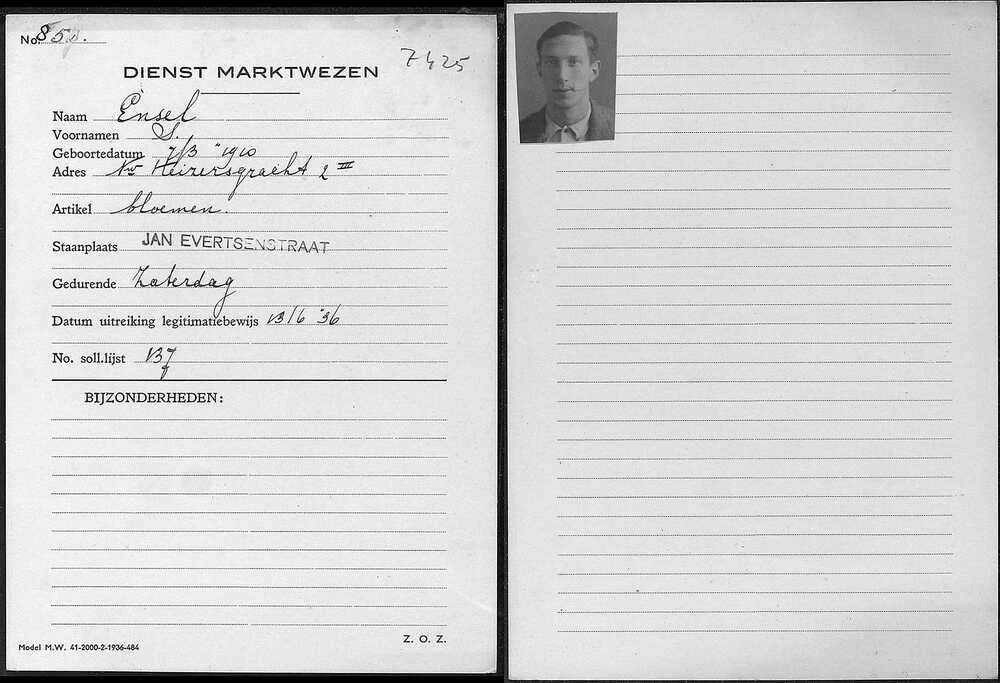 No. 850.
7425
DIENST MARKTWEZEN
Naam Ensel
Voornamen S.
Geboortedatum 7/3 "1910
Adres Nw Keizersgracht 2 III
Artikel bloemen.
Staanplaats JAN EVERTSENSTRAAT
Gedurende Zaterdag
Datum uitreiking legitimatiebewijs 13/6 '36
No. soll.lijst 137
BIJZONDERHEDEN:
Z. O. Z.
Model M.W. 41-2000-2-1936-484